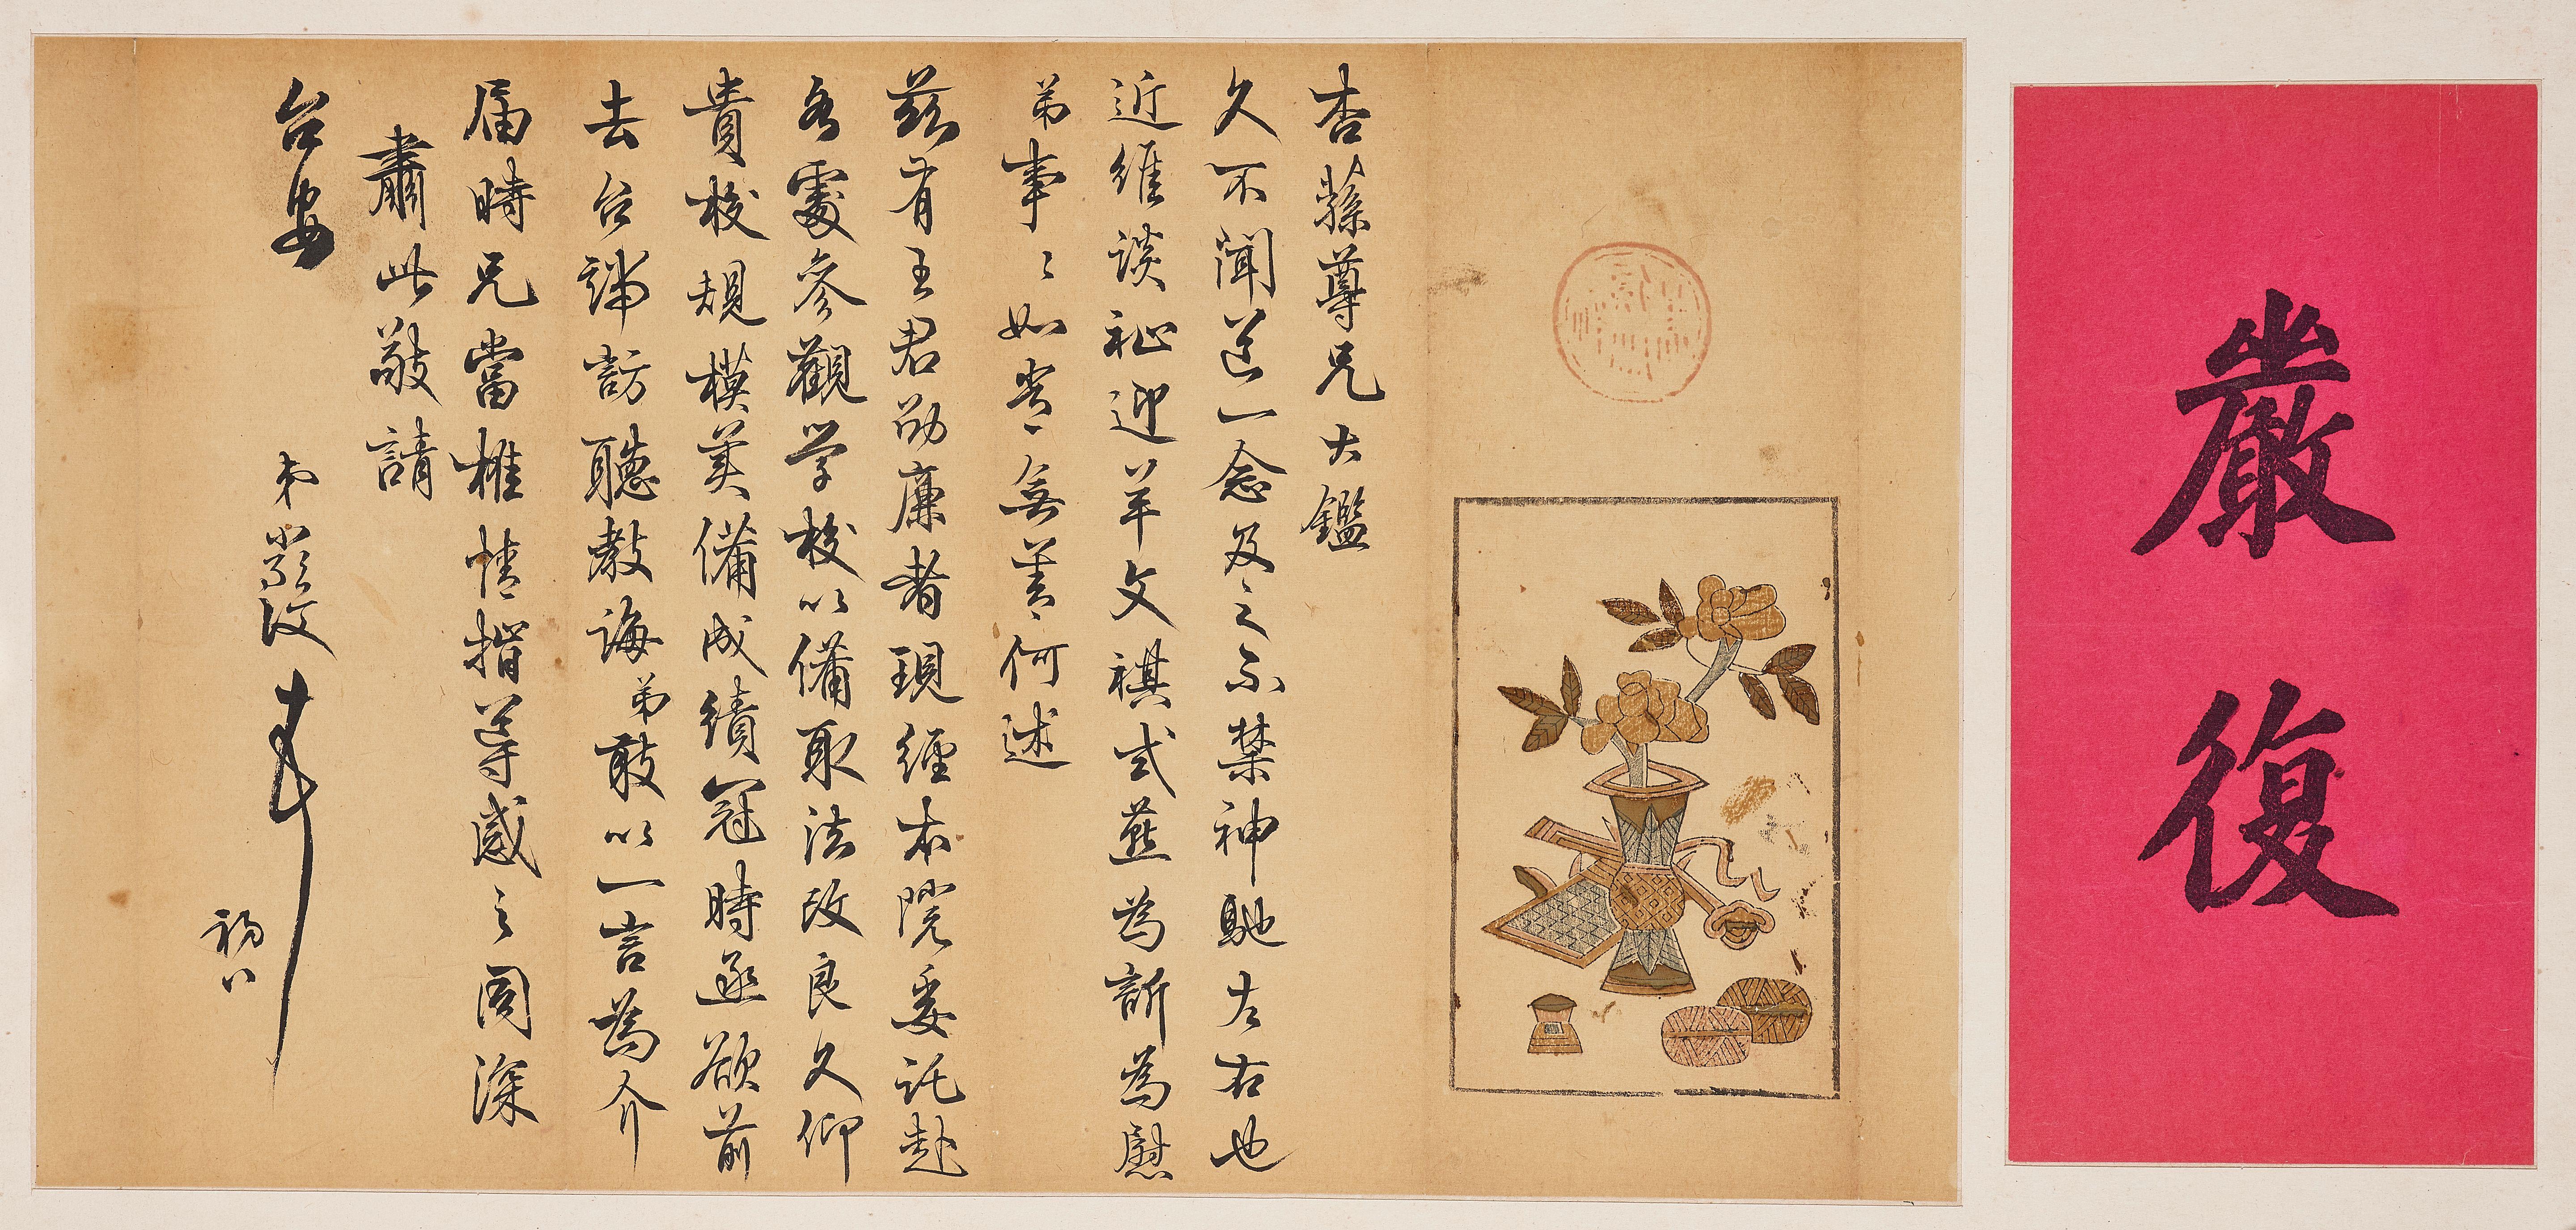 嚴復
杏蓀尊兄大鑑
久不聞道一念及之不禁神馳左右也
近維談祉迎羊文祺式燕為訢為慰
弟事〻如常無善何述
茲有王君劭廉者現經本院委託赴
各處參觀学校以備取法改良久仰
貴校規模美備成績冠時亟欲前
去台端訪聽教誨弟敢以一言為介
届時兄當推情指導感之同深
肅此敬請
台安
弟嚴復
初八